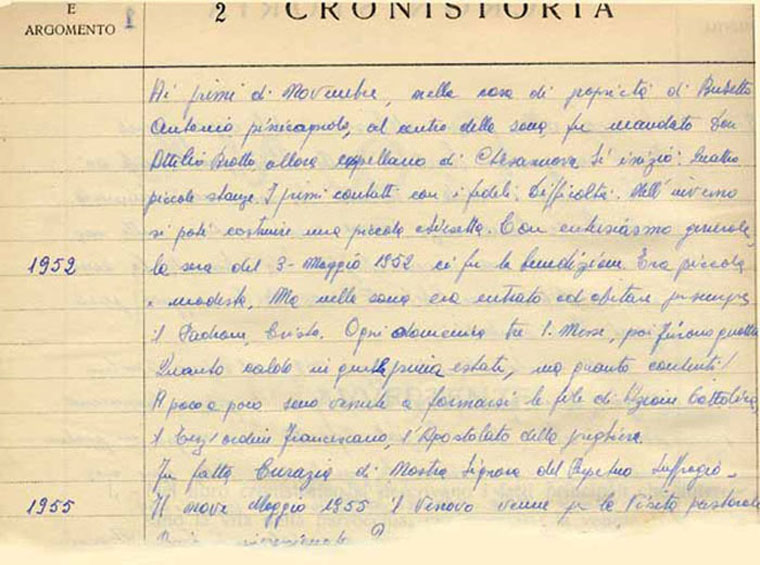 E
ARGOMENTO
1
2 CRONISTORIA
Ai primi di Novembre, nella casa di proprietà di Busetto
Antonio pizzicagnolo, al centro della zona fu mandato Don
Attilio Brotto allora cappellano di Chesanova. Si iniziò: quattro
piccole stanze. I primi contatti con i fedeli. Difficoltà. Nell' inverno
si poté costruire una piccola chiesetta. Con entusiasmo generale,
1952
la sera del 3 - Maggio 1952 ci fu la benedizione. Era piccola
e modesta, Ma nella zona era entrato ad abitare per sempre
il Padrone, Cristo. Ogni domenica tre S. Messe, poi furono quattro
Quanto caldo in quella prima estate, ma quanto contenti!
A poco a poco sono venute a formarsi le file di Azione Cattolica,
il Terz'ordine Francescano, l'Apostolato della preghiera.
Fu fatta Curazia di Nostra Signora del Perpetuo Suffragio -
1955
Il nove Maggio 1955 il Vescovo venne per la Visita pastorale